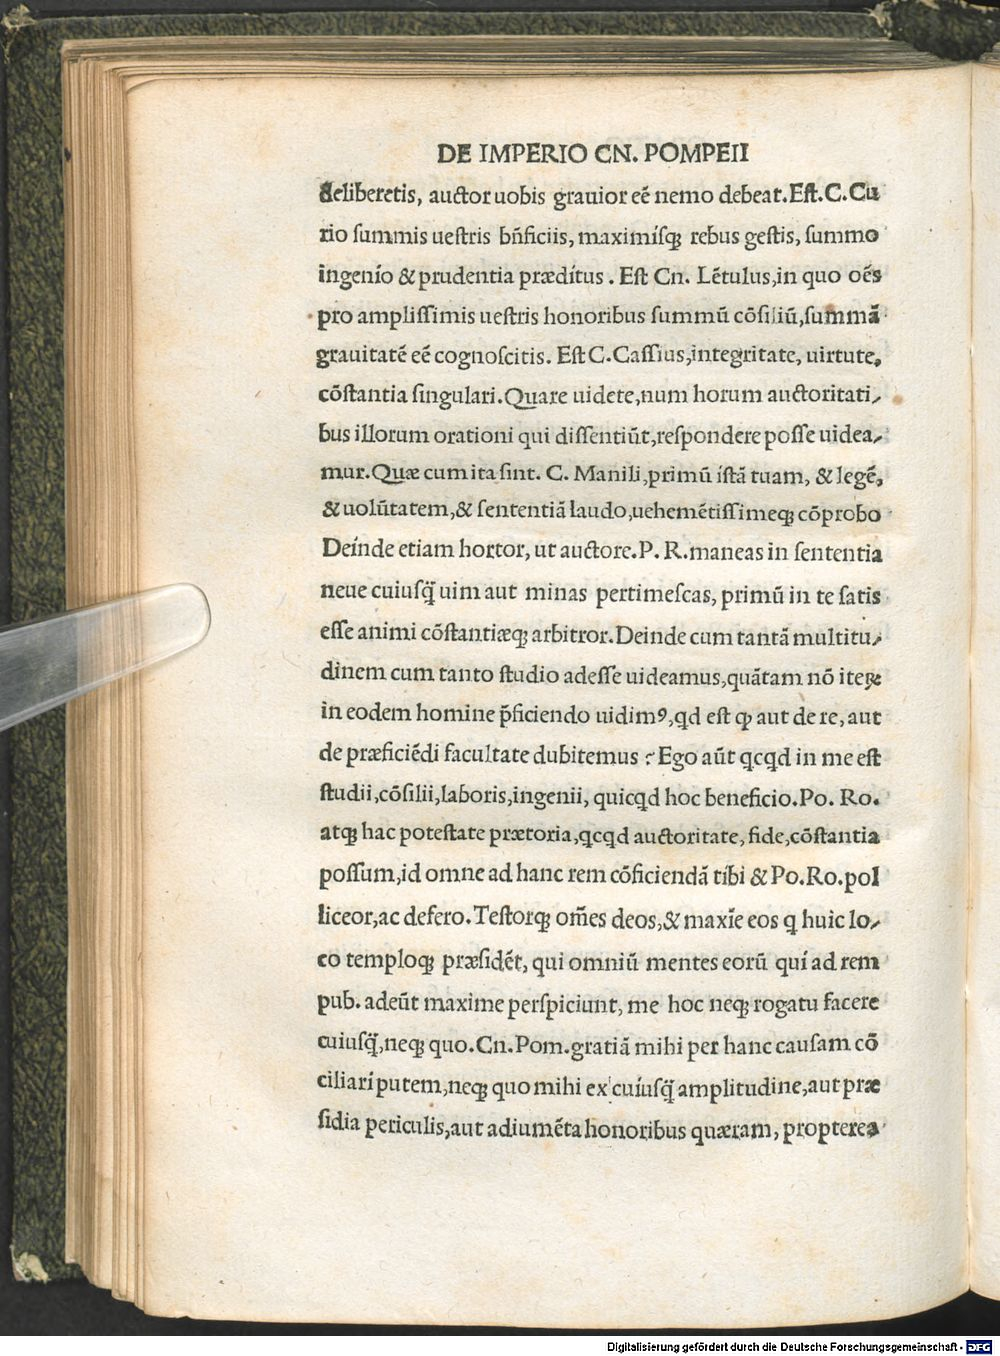 DE IMPERIO CN. POMPEII
deliberetis, auctor uobis grauior eē nemo debeat. Est. C. Cu
rio summis uestris bñficiis, maximisq; rebus gestis, summo
ingenio & prudentia præditus. Est Cn. Lētulus, in quo oēs
pro amplissimis uestris honoribus summū cōsiliū, summā
grauitatē eē cognoscitis. Est C. Cassius, integritate, uirtute,
cōstantia singulari. Quare uidete, num horum auctoritati-
bus illorum orationi qui dissentiūt, respondere posse uidea-
mur. Quæ cum ita sint. C. Manili, primū istā tuam, & legē,
& uolūtatem, & sententiā laudo, uehemētissimeq; cōprobo
Deinde etiam hortor, ut auctore. P. R. maneas in sententia
neue cuiusq̄ uim aut minas pertimescas, primū in te satis
esse animi cōstantiæq; arbitror. Deinde cum tantā multitu-
dinem cum tanto studio adesse uideamus, quātam nō iteꝝ
in eodem homine p̄ficiendo uidimꝰ, qd est ꝙ aut de re, aut
de præficiēdi facultate dubitemus? Ego aūt qcqd in me est
studii, cōsilii, laboris, ingenii, quicqd hoc beneficio. Po. Ro.
atq; hac potestate prætoria, qcqd auctoritate, fide, cōstantia
possum, id omne ad hanc rem cōficiendā tibi & Po. Ro. pol
liceor, ac defero. Testorq; om̄es deos, & maxīe eos q huic lo-
co temploq; præsidēt, qui omniū mentes eorū qui ad rem
pub. adeūt maxime perspiciunt, me hoc neq; rogatu facere
cuiusq̄, neq; quo. Cn. Pom. gratiā mihi per hanc causam cō
ciliari putem, neq; quo mihi ex cuiusq̄ amplitudine, aut præ
sidia periculis, aut adiumēta honoribus quæram, propterea
Digitalisierung gefördert durch die Deutsche Forschungsgemeinschaft - DFG